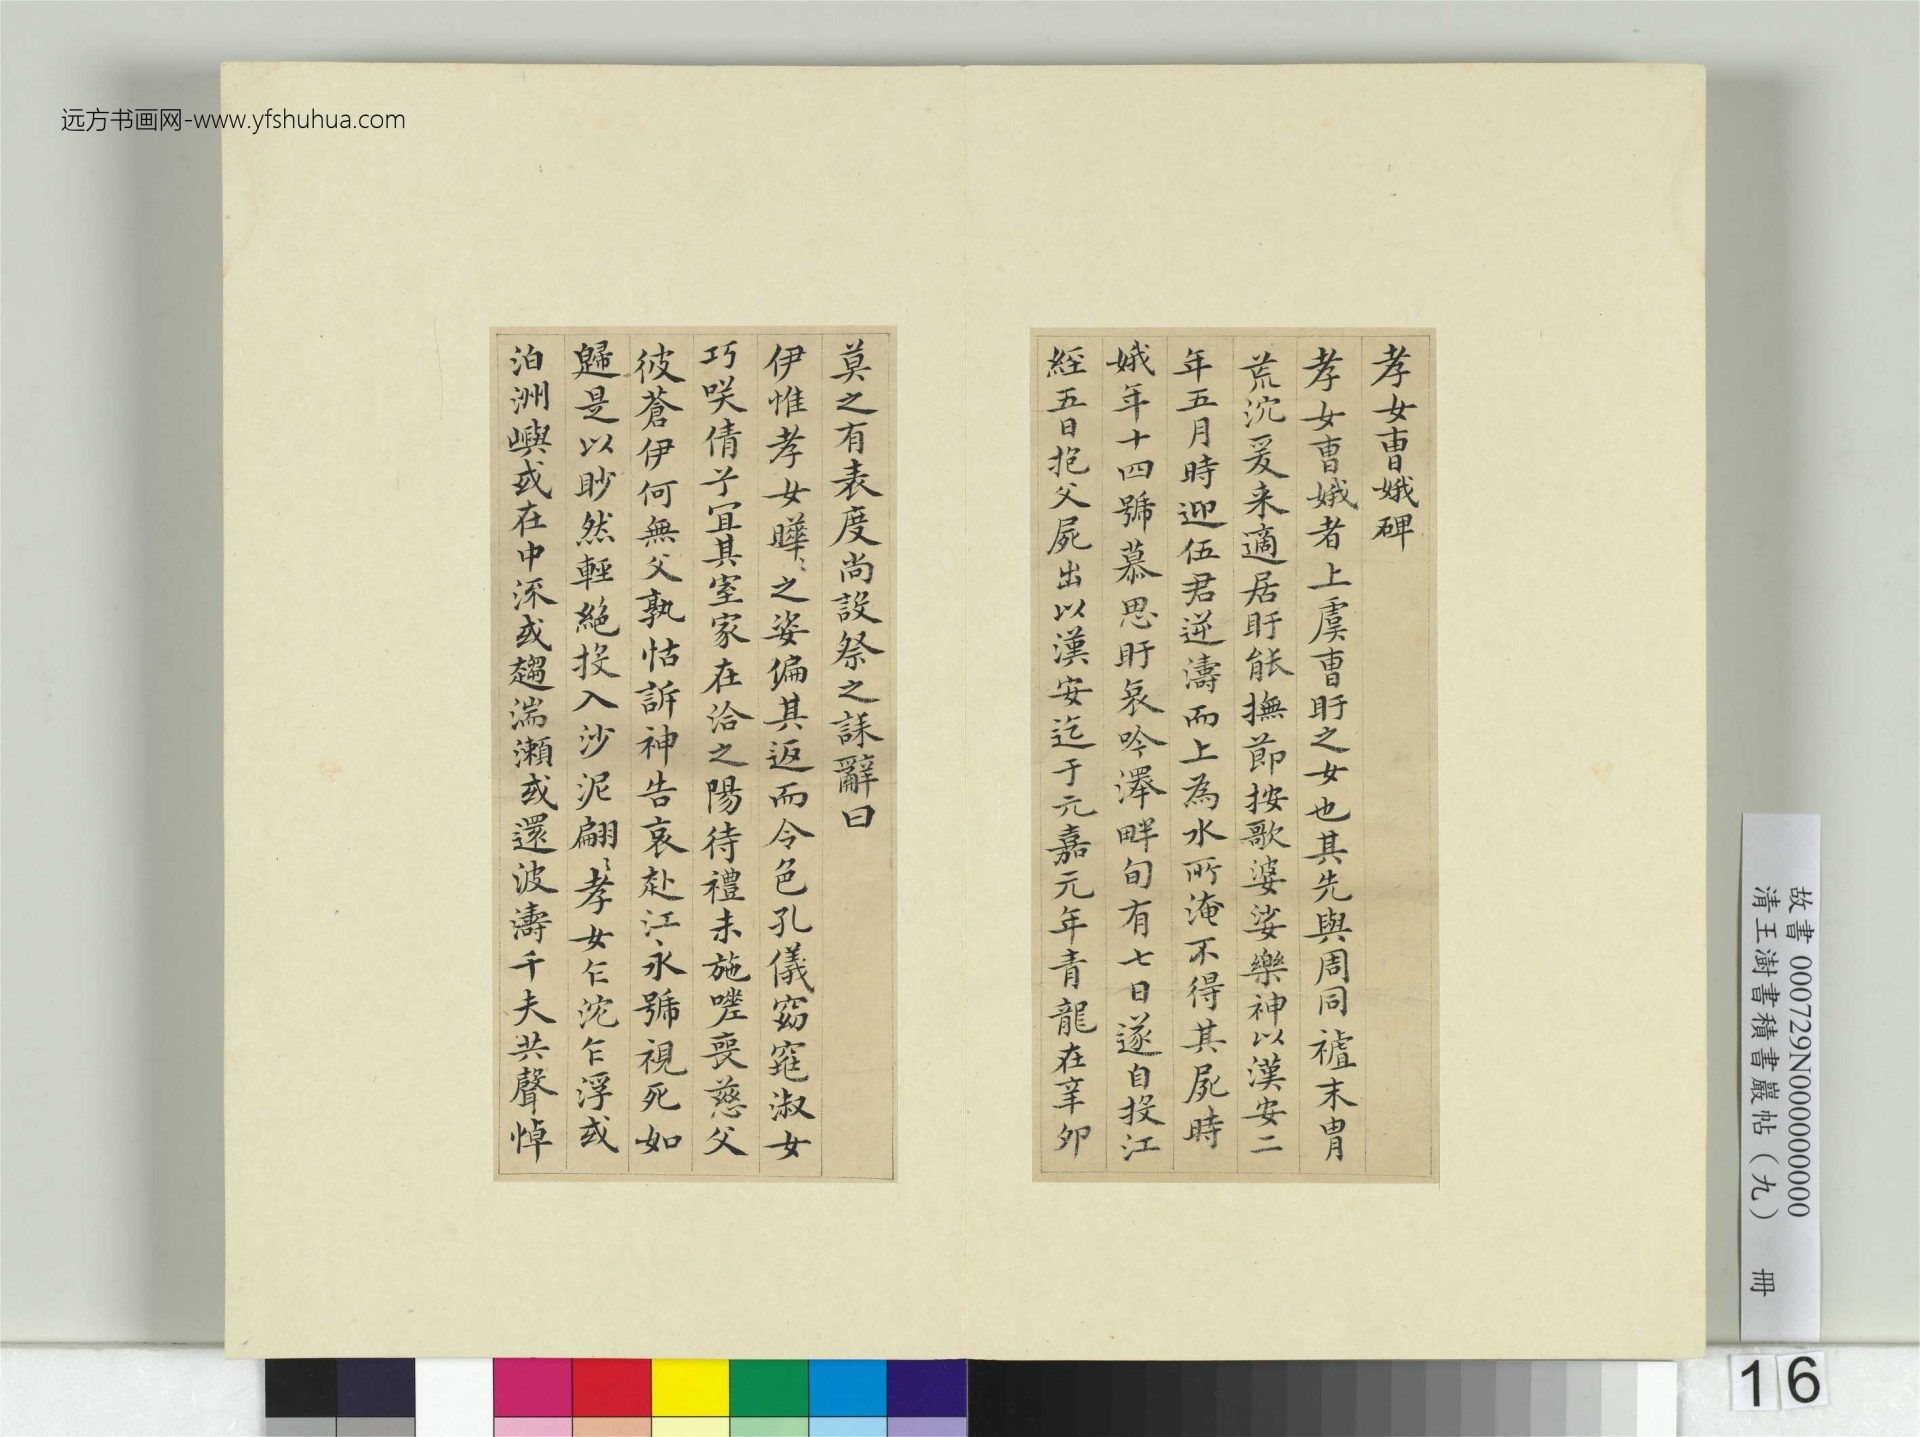 远方书画网-www.yfshuhua.com
孝女曹娥碑
孝女曹娥者上虞曹盱之女也其先與周同禠末胄
荒沉爰来適居盱能撫節按歌婆娑樂神以漢安二
年五月時迎伍君逆濤而上為水所淹不得其屍時
娥年十四號慕思盱哀吟澤畔旬有七日遂自投江
經五日抱父屍出以漢安迄于元嘉元年青龍在辛卯
莫之有表度尚設祭之誄辭曰
伊惟孝女曄〻之姿偏其返而令色孔儀窈窕淑女
巧咲倩兮宜其室家在洽之陽待禮未施嗟喪慈父
彼蒼伊何無父孰怙訴神告哀赴江永號視死如
歸是以眇然輕絕投入沙泥翩〻孝女乍沈乍浮或
泊洲嶼或在中流或趨湍瀬或還波濤千夫共聲悼
故書 000729N000000000
清王澍書積書巖帖（九） 冊
16